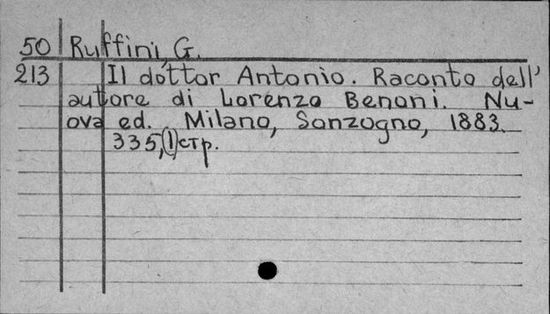 50 Ruffini, G.
213 Il dottor Antonio. Raconto dell'
autore di Lorenzo Benoni. Nu-
ova ed. Milano, Sonzogno, 1883.
335, (1) стр.